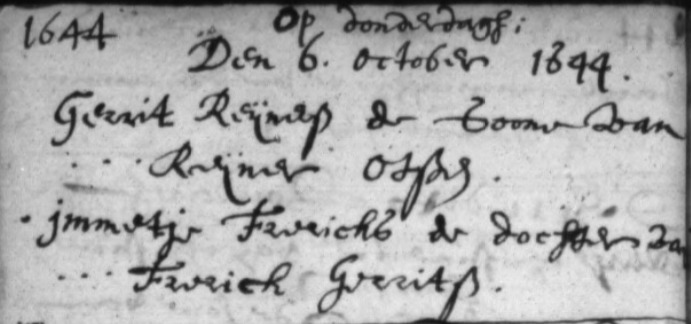 1644 Op donderdagh:
Den 6. October 1644.
Gerrit Reijners de Soone van
... Reijner Otssen.
jmmetje Frerichs de dochter van
... Frerich Gerrits.